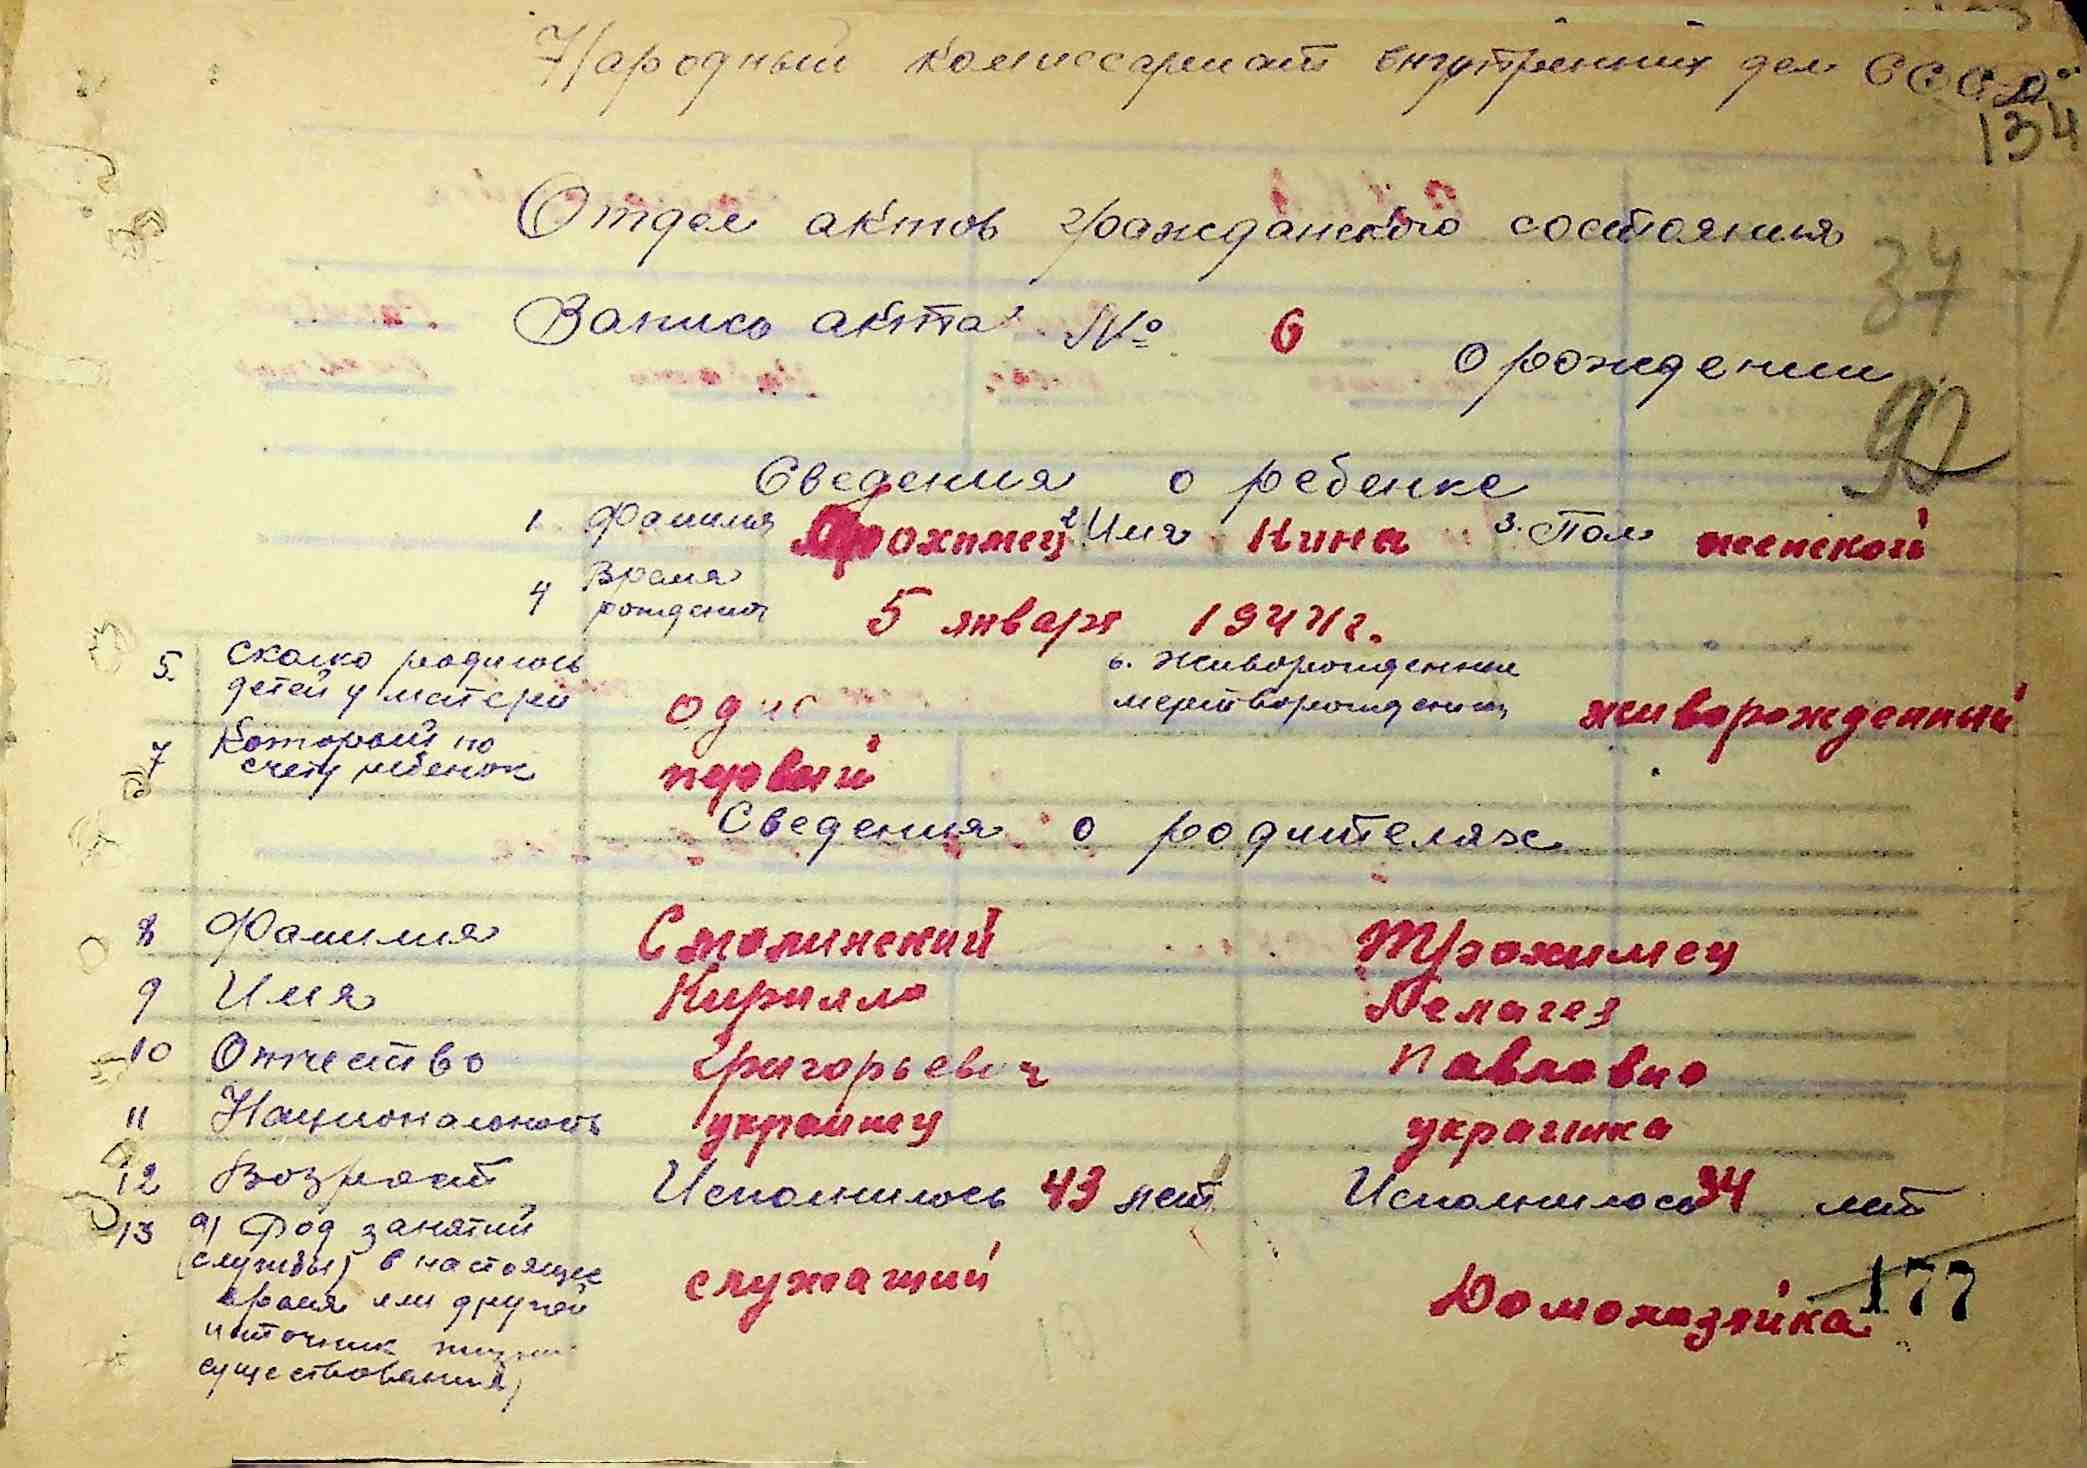 Народный комиссариат внутренних дел СССР
134
Отдел актов гражданского состояния
34-1
Запись акта № 6
о рождении
92
Сведения о ребенке
1 Фамилия Трохимец 2. Имя Нина 3. Пол женской
4 Время рождения 5 января 1944 г.
5. Сколко родилось детей у матери один 6. живорожденные мертворожденные живорожденный
7 Который по счету ребенок первый
Сведения о родителях
8 Фамилия Смолинский Трохимец
9 Имя Кирилло Пелагея
10 Отчество Григорьевич Павловно
11 Национальность украинец украинка
12 Возраст Исполнилось 43 лет Исполнилось 34 лет
13 а) Род занятий
(службы) в настоящее
время или другой
источник
существования) служащий Домохазяйка 177